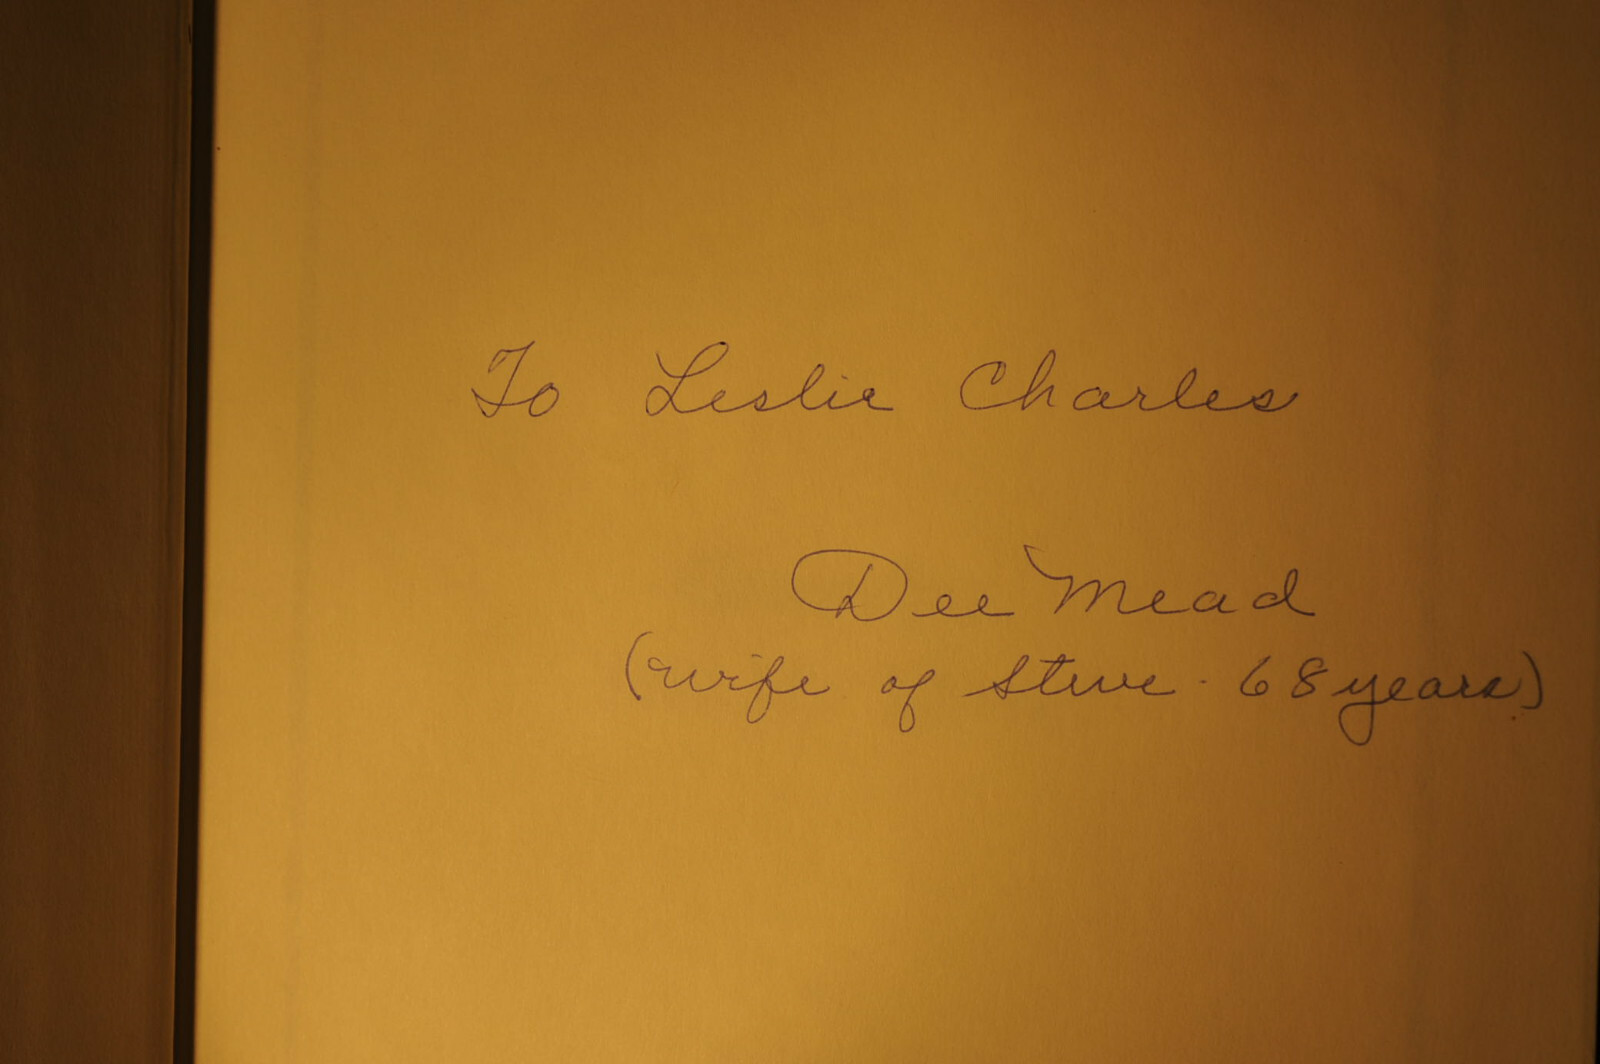 To Leslie Charles
Dee Mead
(wife of Steve. 68 years)